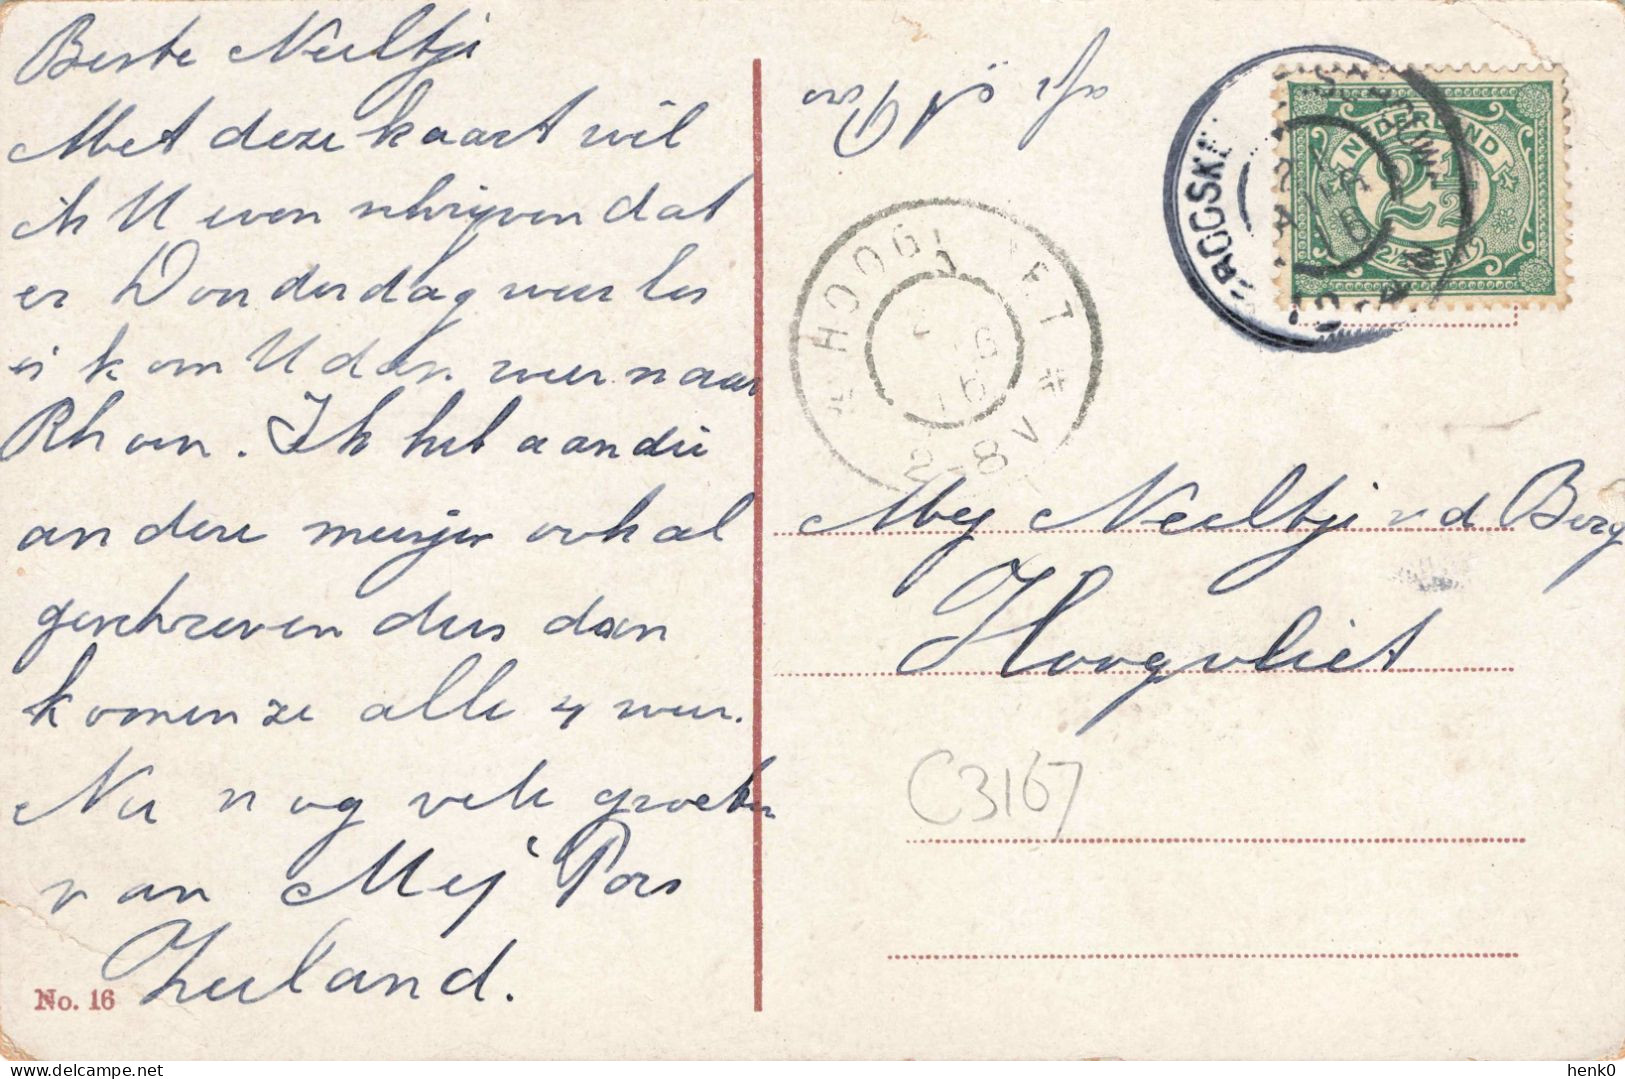 Beste Neeltje
Met deze kaart wil
ik U even schrijven dat
er Donderdag weer les
is kom U dan weer naar
Rhoon. Ik heb aan die
andere meisjes ook al
geschreven dus dan
komen ze alle 4 weer.
Nu nog vele groeten
van Mej Pors
Zeeland.
No. 16
afz
Pors
NEDERLAND
2½
2½ CENT
HOOGVLIET
16
2-8V
Mej Neeltje v d Berg
Hoogvliet
C3167
henk0